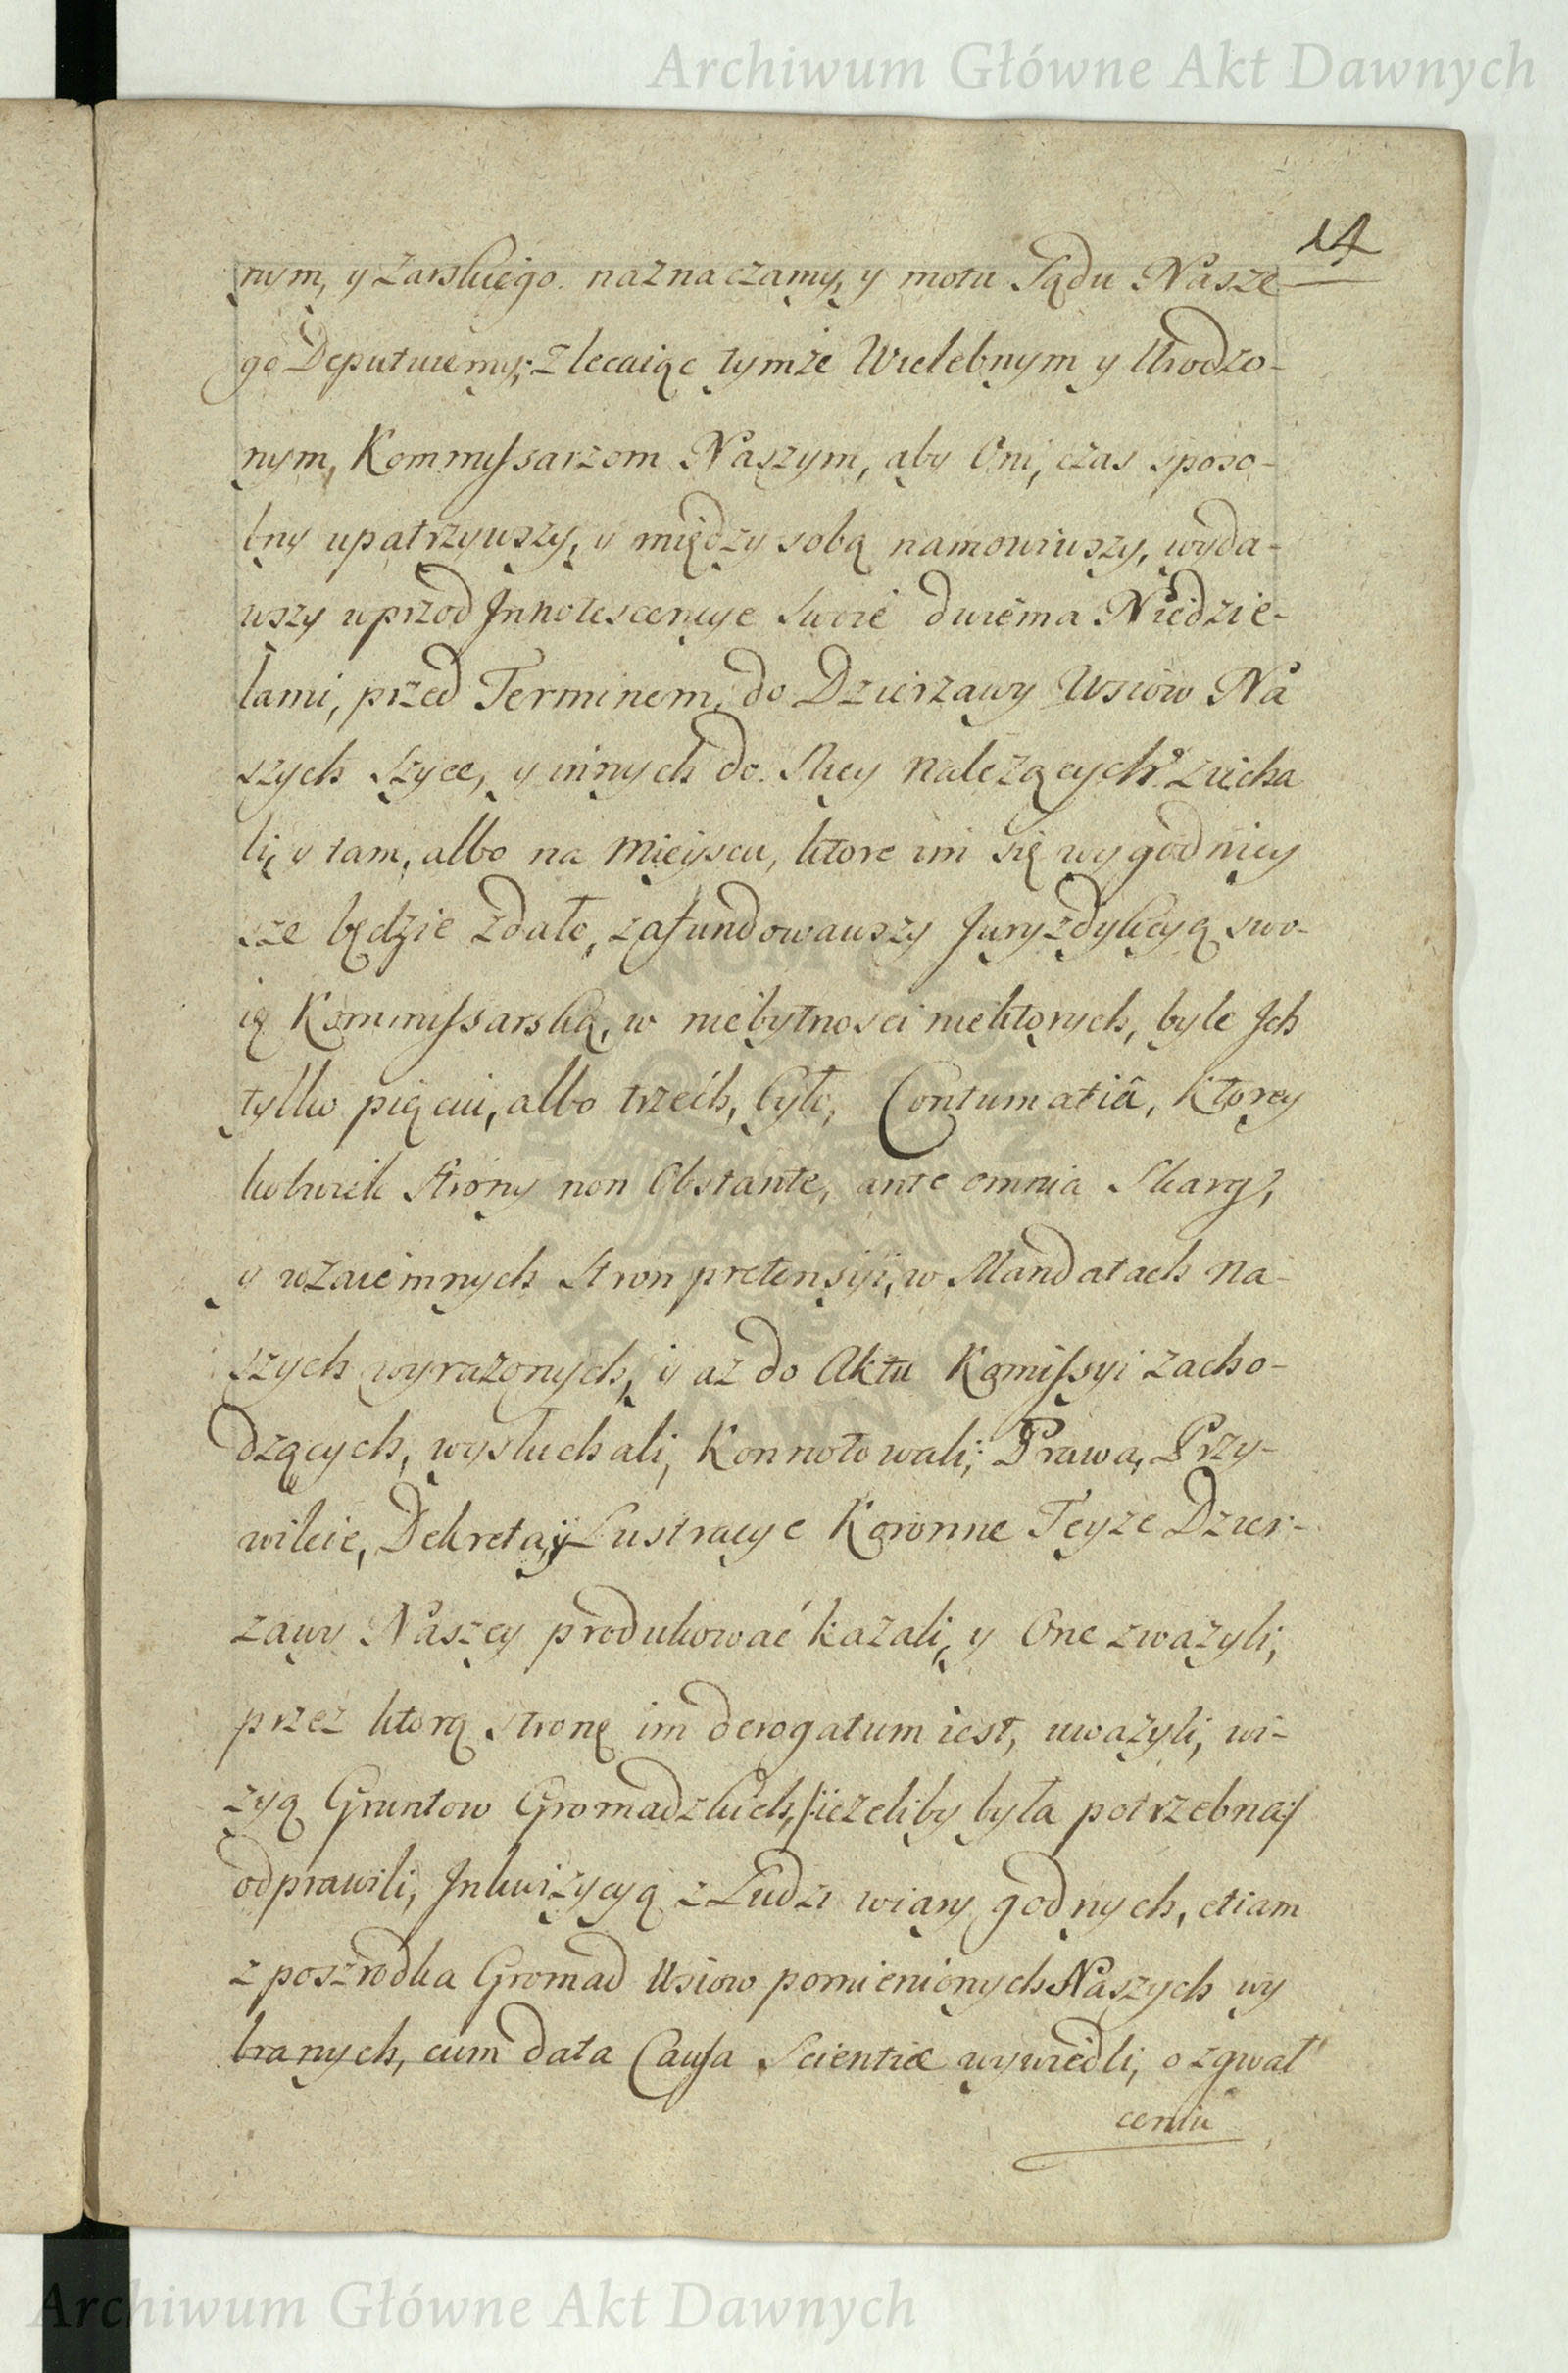 Archiwum Główne Akt Dawnych
14
nym, y Zarskiego. naznaczamy, y motu Sądu Nasze
go Deputuiemy; zlecaiąc tymże Wielebnym y Urodzo-
nym, Kommissarzom Naszym, aby Oni, czas sposo-
bny upatrzywszy, y między sobą namowiwszy, wyda-
wszy wprzod Innotescencye swoie dwiema Niedzie-
lami, przed Terminem, do Dzierzawy Wsiow Na
szych Szyce, y innych do Niey należących ziecha
li, y tam, albo na Mieyscu, ktore im się wygodniey
sze będzie zdało, zafundowawszy Juryzdykcyą swo-
ią Kommissarską, w niebytnosci niektorych, byle Ich
tylko pięciu, albo trzech, było, Contumatiâ, Ktorey
kolwiek Strony non Obstante, ante omnia Skarg,
y wzaiemnych Stron pretensyi, w Mandatach na-
szych wyrażonych, y aż do Aktu Komissyi zacho-
dzących, wysłuchali, Konnotowali; Prawa, Przy-
wileie, Dekreta, y Lustracye Koronne Teyże Dzier-
żawy Naszey produkować kazali, y One zważyli,
przez ktorą stronę im derogatum iest, uważyli, wi-
zyą Gruntow Gromadzkich, /:ieżeliby była potrzebna:/
odprawili, Inkwizycyą z Ludzi wiary godnych, etiam
z poszrodka Gromad Wsiow pomienionych Naszych wy
branych, cum data Causa Scientiæ wywiedli, o zgwał
ceniu
Archiwum Główne Akt Dawnych